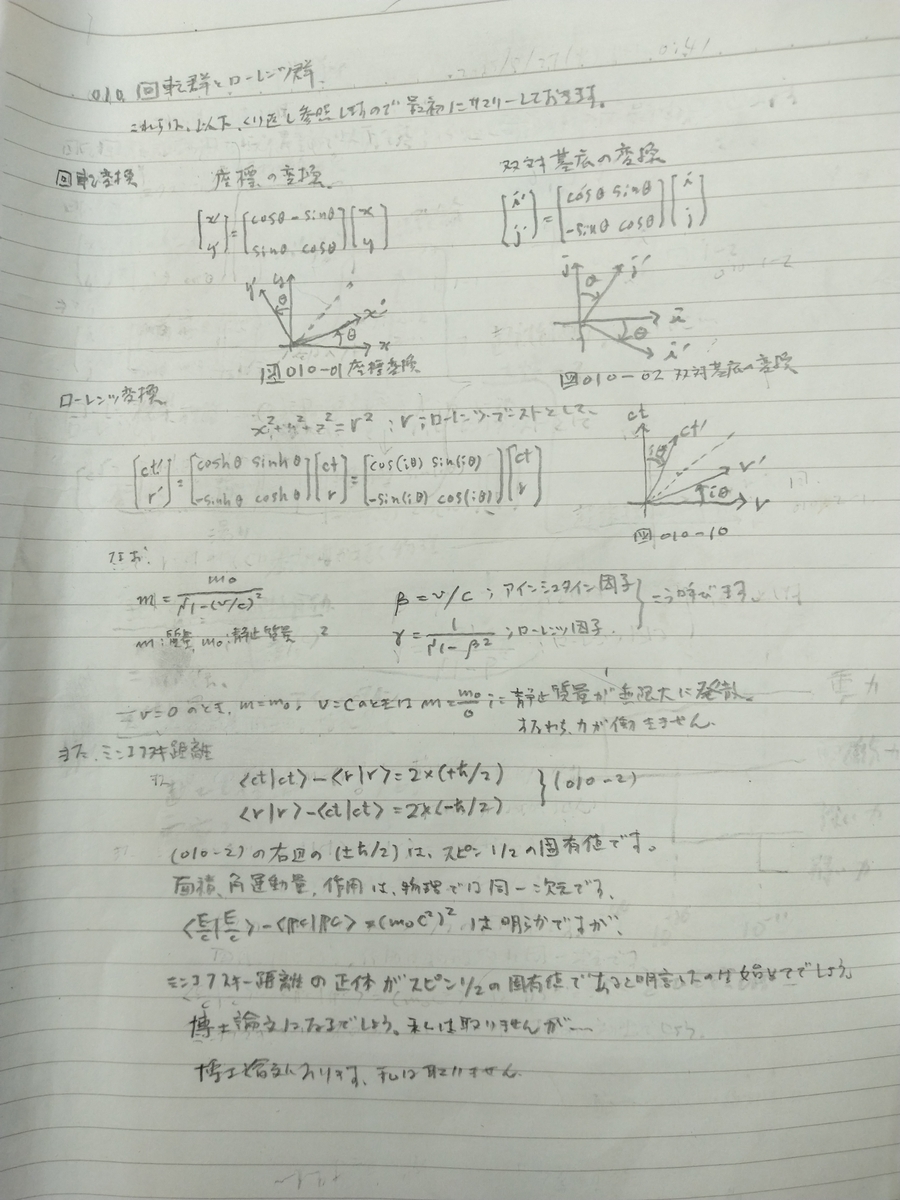 010. 回転群とローレンツ群
これらは、以下、くり返し参照しますので最初にサマリーしておきます。
回転変換 座標の変換 双対基底の変換
[x' y'] = [cosθ -sinθ sinθ cosθ] [x y]
[i' j'] = [cosθ sinθ -sinθ cosθ] [i j]
y' y θ x' θ x
j θ j' i θ i'
図010-01 座標変換
図010-02 双対基底の変換
ローレンツ変換
x²+y²+z²=r² ; r;ローレンツ・ブーストとして、
[ct' r'] = [coshθ sinhθ -sinhθ coshθ] [ct r] = [cos(iθ) sin(iθ) -sin(iθ) cos(iθ)] [ct r]
ct ct' iθ r' iθ r
図010-10
なお、
m = m₀/√1-(v/c)²
β=v/c ; アインシュタイン因子
γ = 1/√1-β² ; ローレンツ因子
} こう呼びます。
m:質量, m₀:静止質量
v=0のとき、m=m₀, v=cのときは m=m₀/0 ;=静止質量が無限大に発散。
すなわち、力が働きません。
また、ミンコフスキー距離
⟨ct|ct⟩-⟨r|r⟩=2×(+ℏ/2)
⟨r|r⟩-⟨ct|ct⟩=2×(-ℏ/2)
} (010-2)
(010-2)の右辺の(±ℏ/2)は、スピン1/2の固有値です。
面積、角運動量、作用は、物理では同一次元です、
⟨E|E⟩-⟨pc|pc⟩=(m₀c²)² は明らかですが、
ミンコフスキー距離の正体がスピン1/2の固有値であると明言したのは始めてでしょう
博士論文になるでしょう。私は取りませんが…
博士論文になります、私は取りません
重力
強い力
弱い力